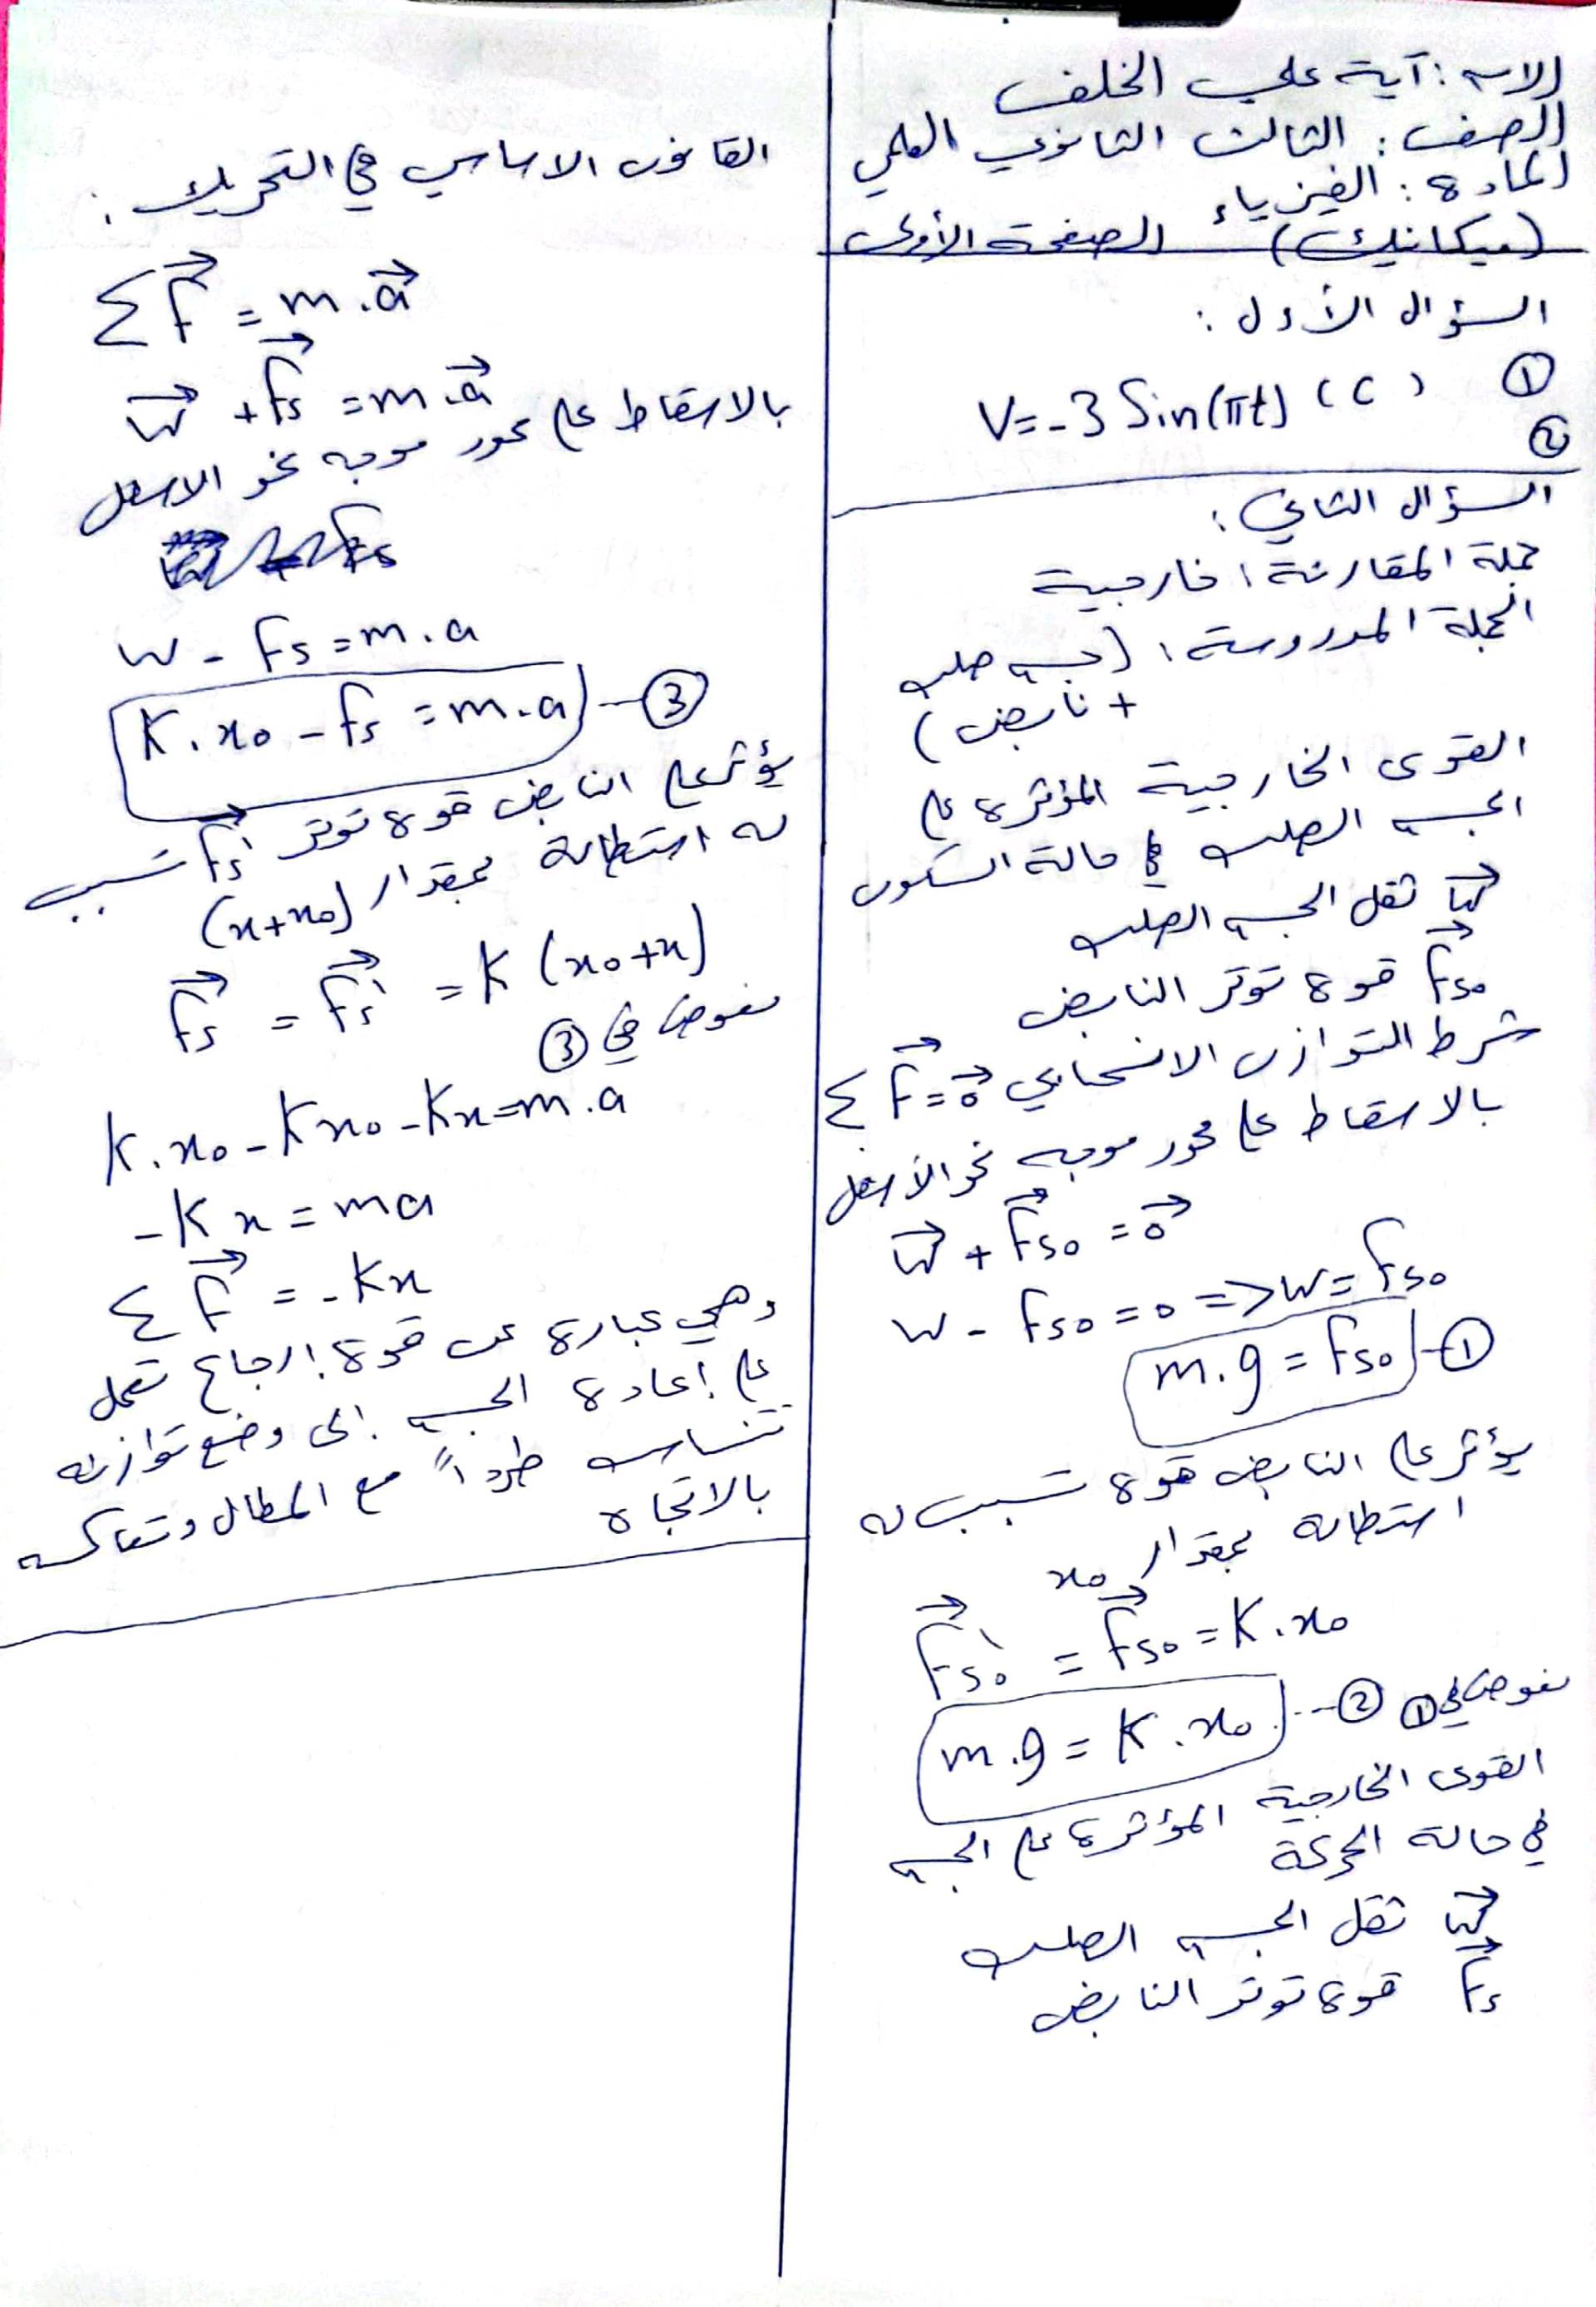 الاسم : آية علي الخلف
الصف : الثالث الثانوي العلمي
المادة : الفيزياء
(ميكانيك) الصفحة الأولى
السؤال الأول :
① V=-3 Sin(πt) (C)
②
السؤال الثاني :
جملة المقارنة : خارجية
الجملة المدروسة : (جسم صلب
+ نابض)
القوى الخارجية المؤثرة على
الجسم الصلب في حالة السكون
W⃗ ثقل الجسم الصلب
F⃗s₀ قوة توتر النابض
شرط التوازن الانسحابي ΣF⃗=0⃗
بالاسقاط على محور موجه نحو الأسفل
W⃗ + F⃗s₀ = 0⃗
W - Fs₀ = 0 => W = Fs₀
m.g = Fs₀ -①
يؤثر على النابض قوة تسبب له
استطالة بمقدار x₀
F⃗s₀' = F⃗s₀ = K.x₀
نعوض في ①
m.g = K.x₀ ---②
القوى الخارجية المؤثرة على الجسم
في حالة الحركة
W⃗ ثقل الجسم الصلب
F⃗s قوة توتر النابض
القانون الاساسي في التحريك :
ΣF⃗ = m.a⃗
W⃗ + F⃗s = m.a⃗
بالاسقاط على محور موجه نحو الاسفل
W - Fs = m.a
K.x₀ - Fs = m.a -③
يؤثر على النابض قوة توتر F⃗s' تسبب
له استطالة بمقدار (x+x₀)
F⃗s = F⃗s' = K (x₀+x)
نعوض في ③
K.x₀ - Kx₀ - Kx = m.a
-Kx = ma
ΣF⃗ = -Kx
وهي عبارة عن قوة إرجاع تعمل
على إعادة الجسم إلى وضع توازنه
تتناسب طرداً مع المطال وتعاكسه
بالاتجاه